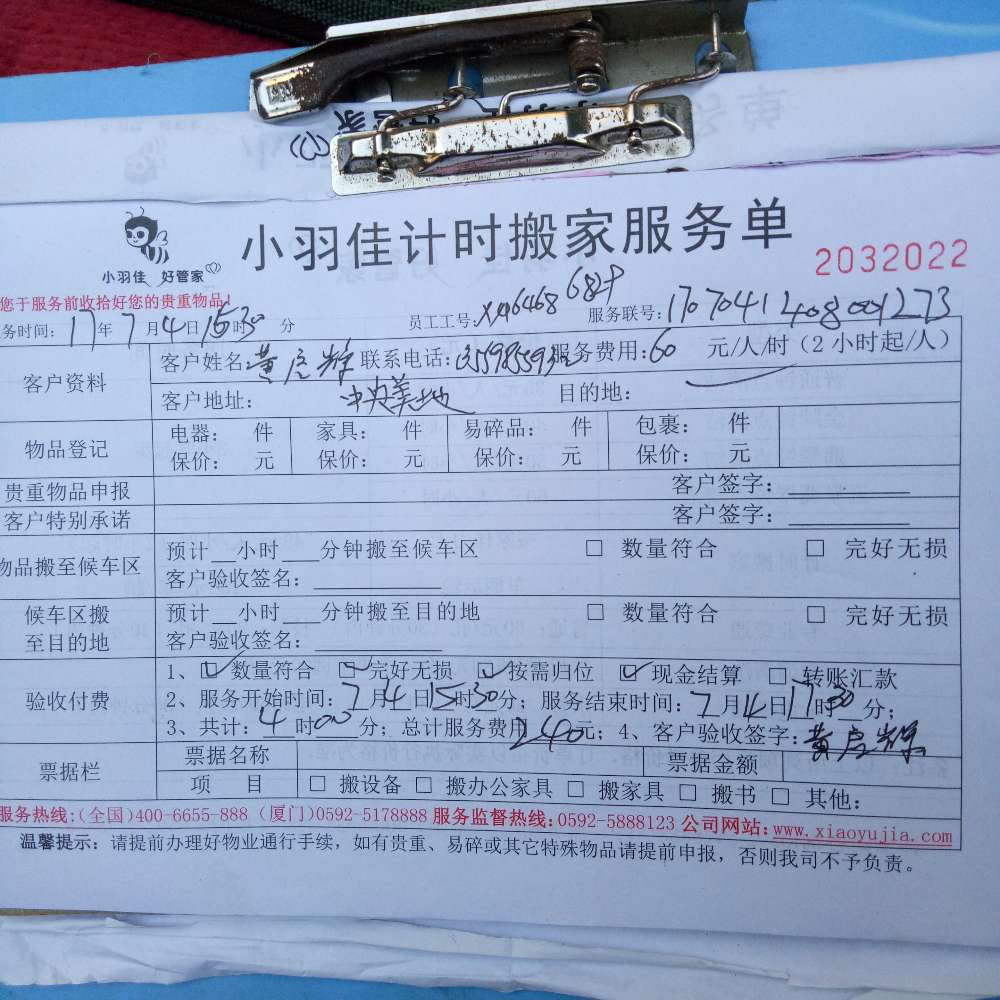 小羽佳 好管家
小羽佳计时搬家服务单
2032022
您于服务前收拾好您的贵重物品!
务时间: 17年7月4日15时30分 员工工号: 服务联号: 17070412408001273
客户资料
客户姓名: 黄启辉 联系电话: 服务费用: 60 元/人/时 (2小时起/人)
客户地址: 中央美地 目的地:
物品登记
电器: 件 家具: 件 易碎品: 件 包裹: 件
保价: 元 保价: 元 保价: 元 保价: 元
贵重物品申报 客户签字:
客户特别承诺 客户签字:
物品搬至候车区
预计__小时___分钟搬至候车区 □ 数量符合 □ 完好无损
客户验收签名:
候车区搬至目的地
预计__小时___分钟搬至目的地 □ 数量符合 □ 完好无损
客户验收签名:
验收付费
1、☑数量符合 ☑完好无损 ☑按需归位 ☑现金结算 □ 转账汇款
2、服务开始时间: 7月4日15时30分; 服务结束时间: 7月4日17时30分;
3、共计: 4时00分; 总计服务费用240元; 4、客户验收签字: 黄启辉
票据栏
票据名称 票据金额
项 目 □ 搬设备 □ 搬办公家具 □ 搬家具 □ 搬书 □ 其他:
服务热线:(全国)400-6655-888 (厦门)0592-5178888 服务监督热线:0592-5888123 公司网站:www.xiaoyujia.com
温馨提示: 请提前办理好物业通行手续, 如有贵重、易碎或其它特殊物品请提前申报, 否则我司不予负责。